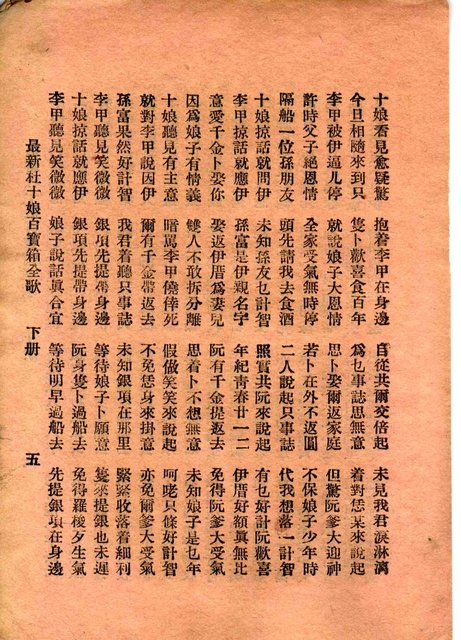 十娘看見愈疑驚　抱着李甲在身邊　自從共爾交倍起　未見我君淚淋漓
今旦相隨來到只　隻卜歡喜食百年　爲乜事誌思無意　着對恁某來說起
李甲被伊逼儿停　就說娘子大恩情　思卜娶爾返家庭　但驚阮爹大迎神
許時父子絕恩情　全家受氣無時停　若卜在外不返圓　不保娘子少年時
隔船一位孫朋友　頭先請我去食酒　二人說起只事誌　代我想落一計智
十娘掠話就問伊　未知孫友乜計智　照實共阮來說起　有乜好計阮歡喜
李甲掠話就應伊　孫富是伊親名字　年紀靑春廿一二　伊厝好額眞無比
意愛千金卜娶你　娶返伊厝爲妻兒　阮有千金提返去　免得阮爹大受氣
因爲娘子有情義　雙人不敢拆分離　思着卜不想無意　未知娘子是乜年
十娘聽見有主意　暗罵李甲僥倖死　假做笑笑來說起　呵咾只條好計智
就對李甲說因伊　爾有千金帶返去　不免恁身來掛意　亦免爾爹大受氣
孫富果然好計智　我君着聽只事誌　未知銀項在那里　緊緊收落着細利
李甲聽見笑微微　銀項先提帶身邊　等待娘子卜願意　隻來提銀也未遲
十娘掠話就應伊　銀項先提帶身邊　阮身隻卜過船去　免得羅梭歹生氣
李甲聽見笑微微　娘子說話眞合宜　等待明早過船去　先提銀項在身邊
最新社十娘百寶箱全歌　下册　五